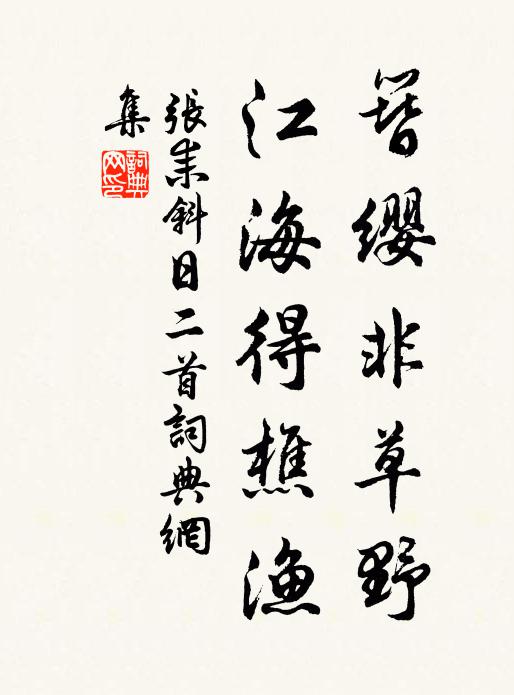 簪缨非草野
江海得樵渔
張耒斜日二首詞典網
集
詞典网印